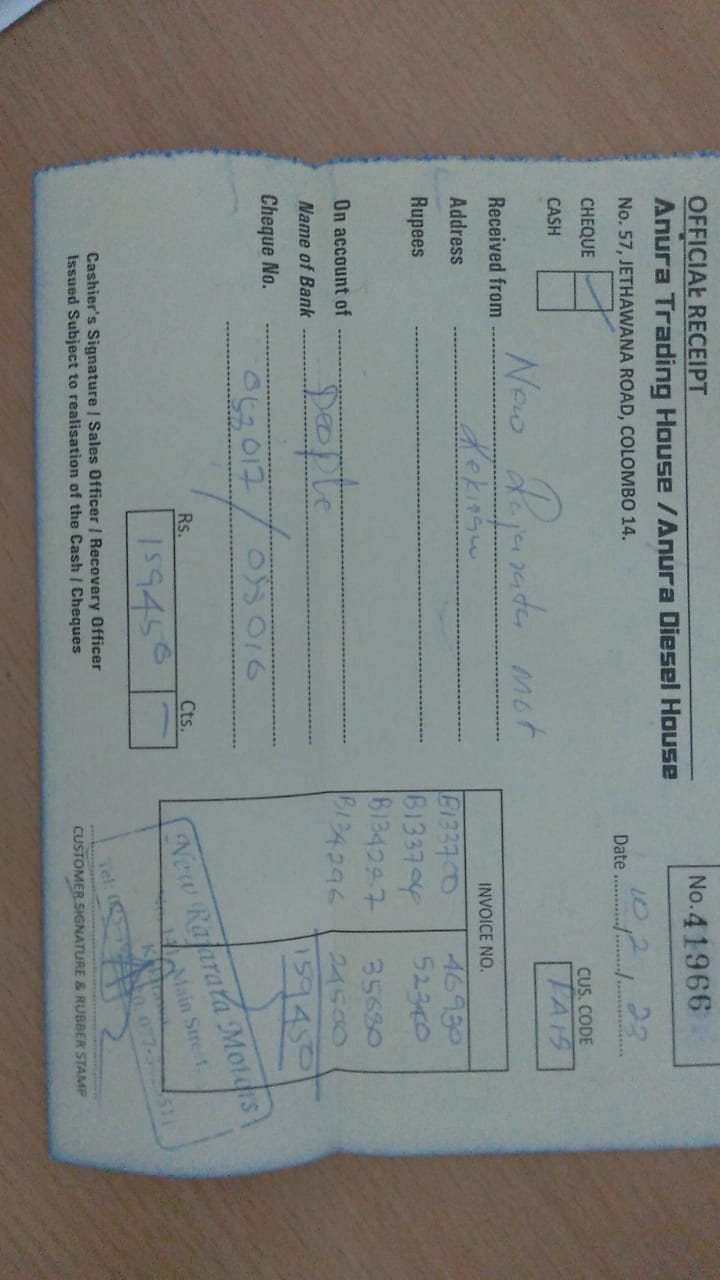 OFFICIAL RECEIPT
No. 41966
Anura Trading House / Anura Diesel House
No. 57, JETHAWANA ROAD, COLOMBO 14.
Date 10/2/23
CHEQUE
CASH
CUS. CODE
Received from New Rajarata Mot
Address
Rupees
On account of
Name of Bank People
Cheque No.
INVOICE NO.
B133700 46930
52340
B134297 35680
B134296 24500
159450
Rs. Cts.
159450 –
New Rajarata Motors
Main Street
Cashier's Signature / Sales Officer / Recovery Officer
Issued Subject to realisation of the Cash / Cheques
CUSTOMER SIGNATURE & RUBBER STAMP